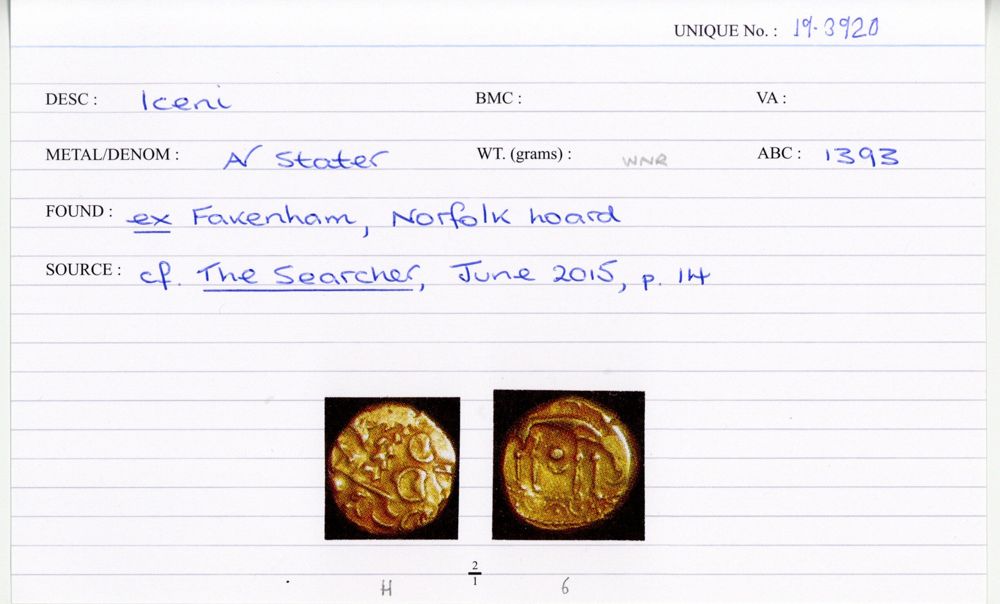 UNIQUE No. : 19.3920
DESC : Iceni BMC : VA :
METAL/DENOM : AV Stater WT. (grams) : WNR ABC : 1393
FOUND : ex Fakenham, Norfolk hoard
SOURCE : cf. The Searcher, June 2015, p. 14
2/1
H 6